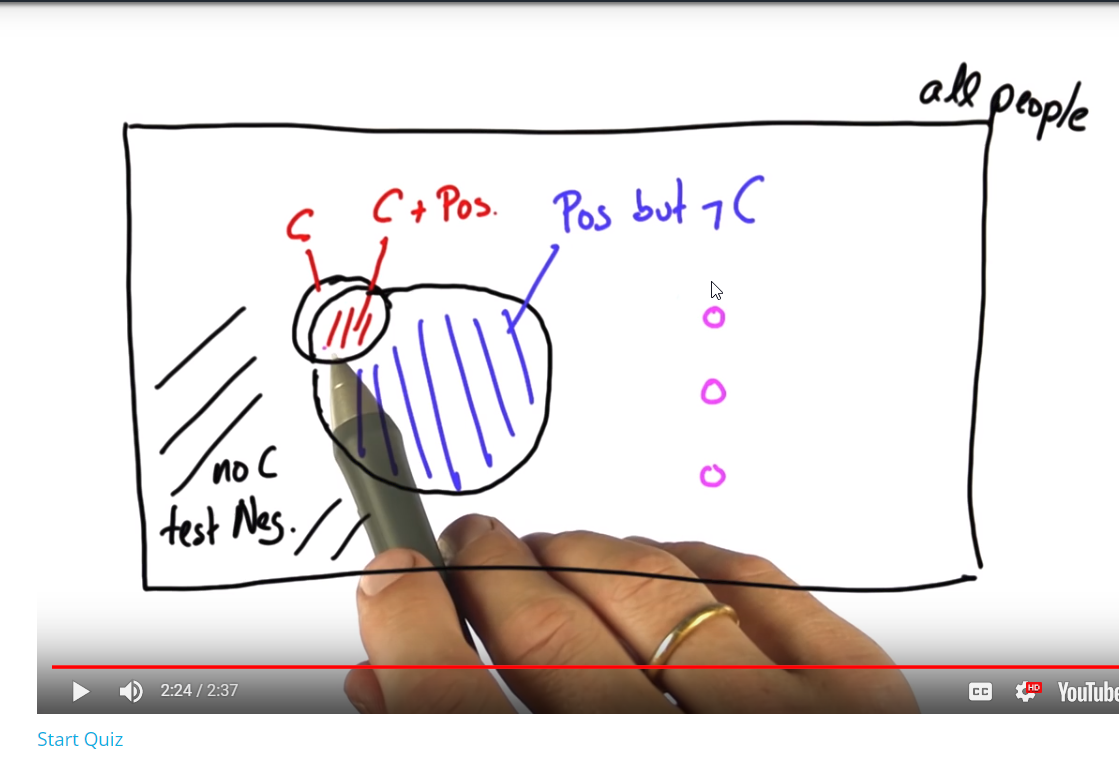 all people
C
C + Pos.
Pos but ¬ C
no C
test Neg.
2:24 / 2:37
CC
HD
YouTube
Start Quiz